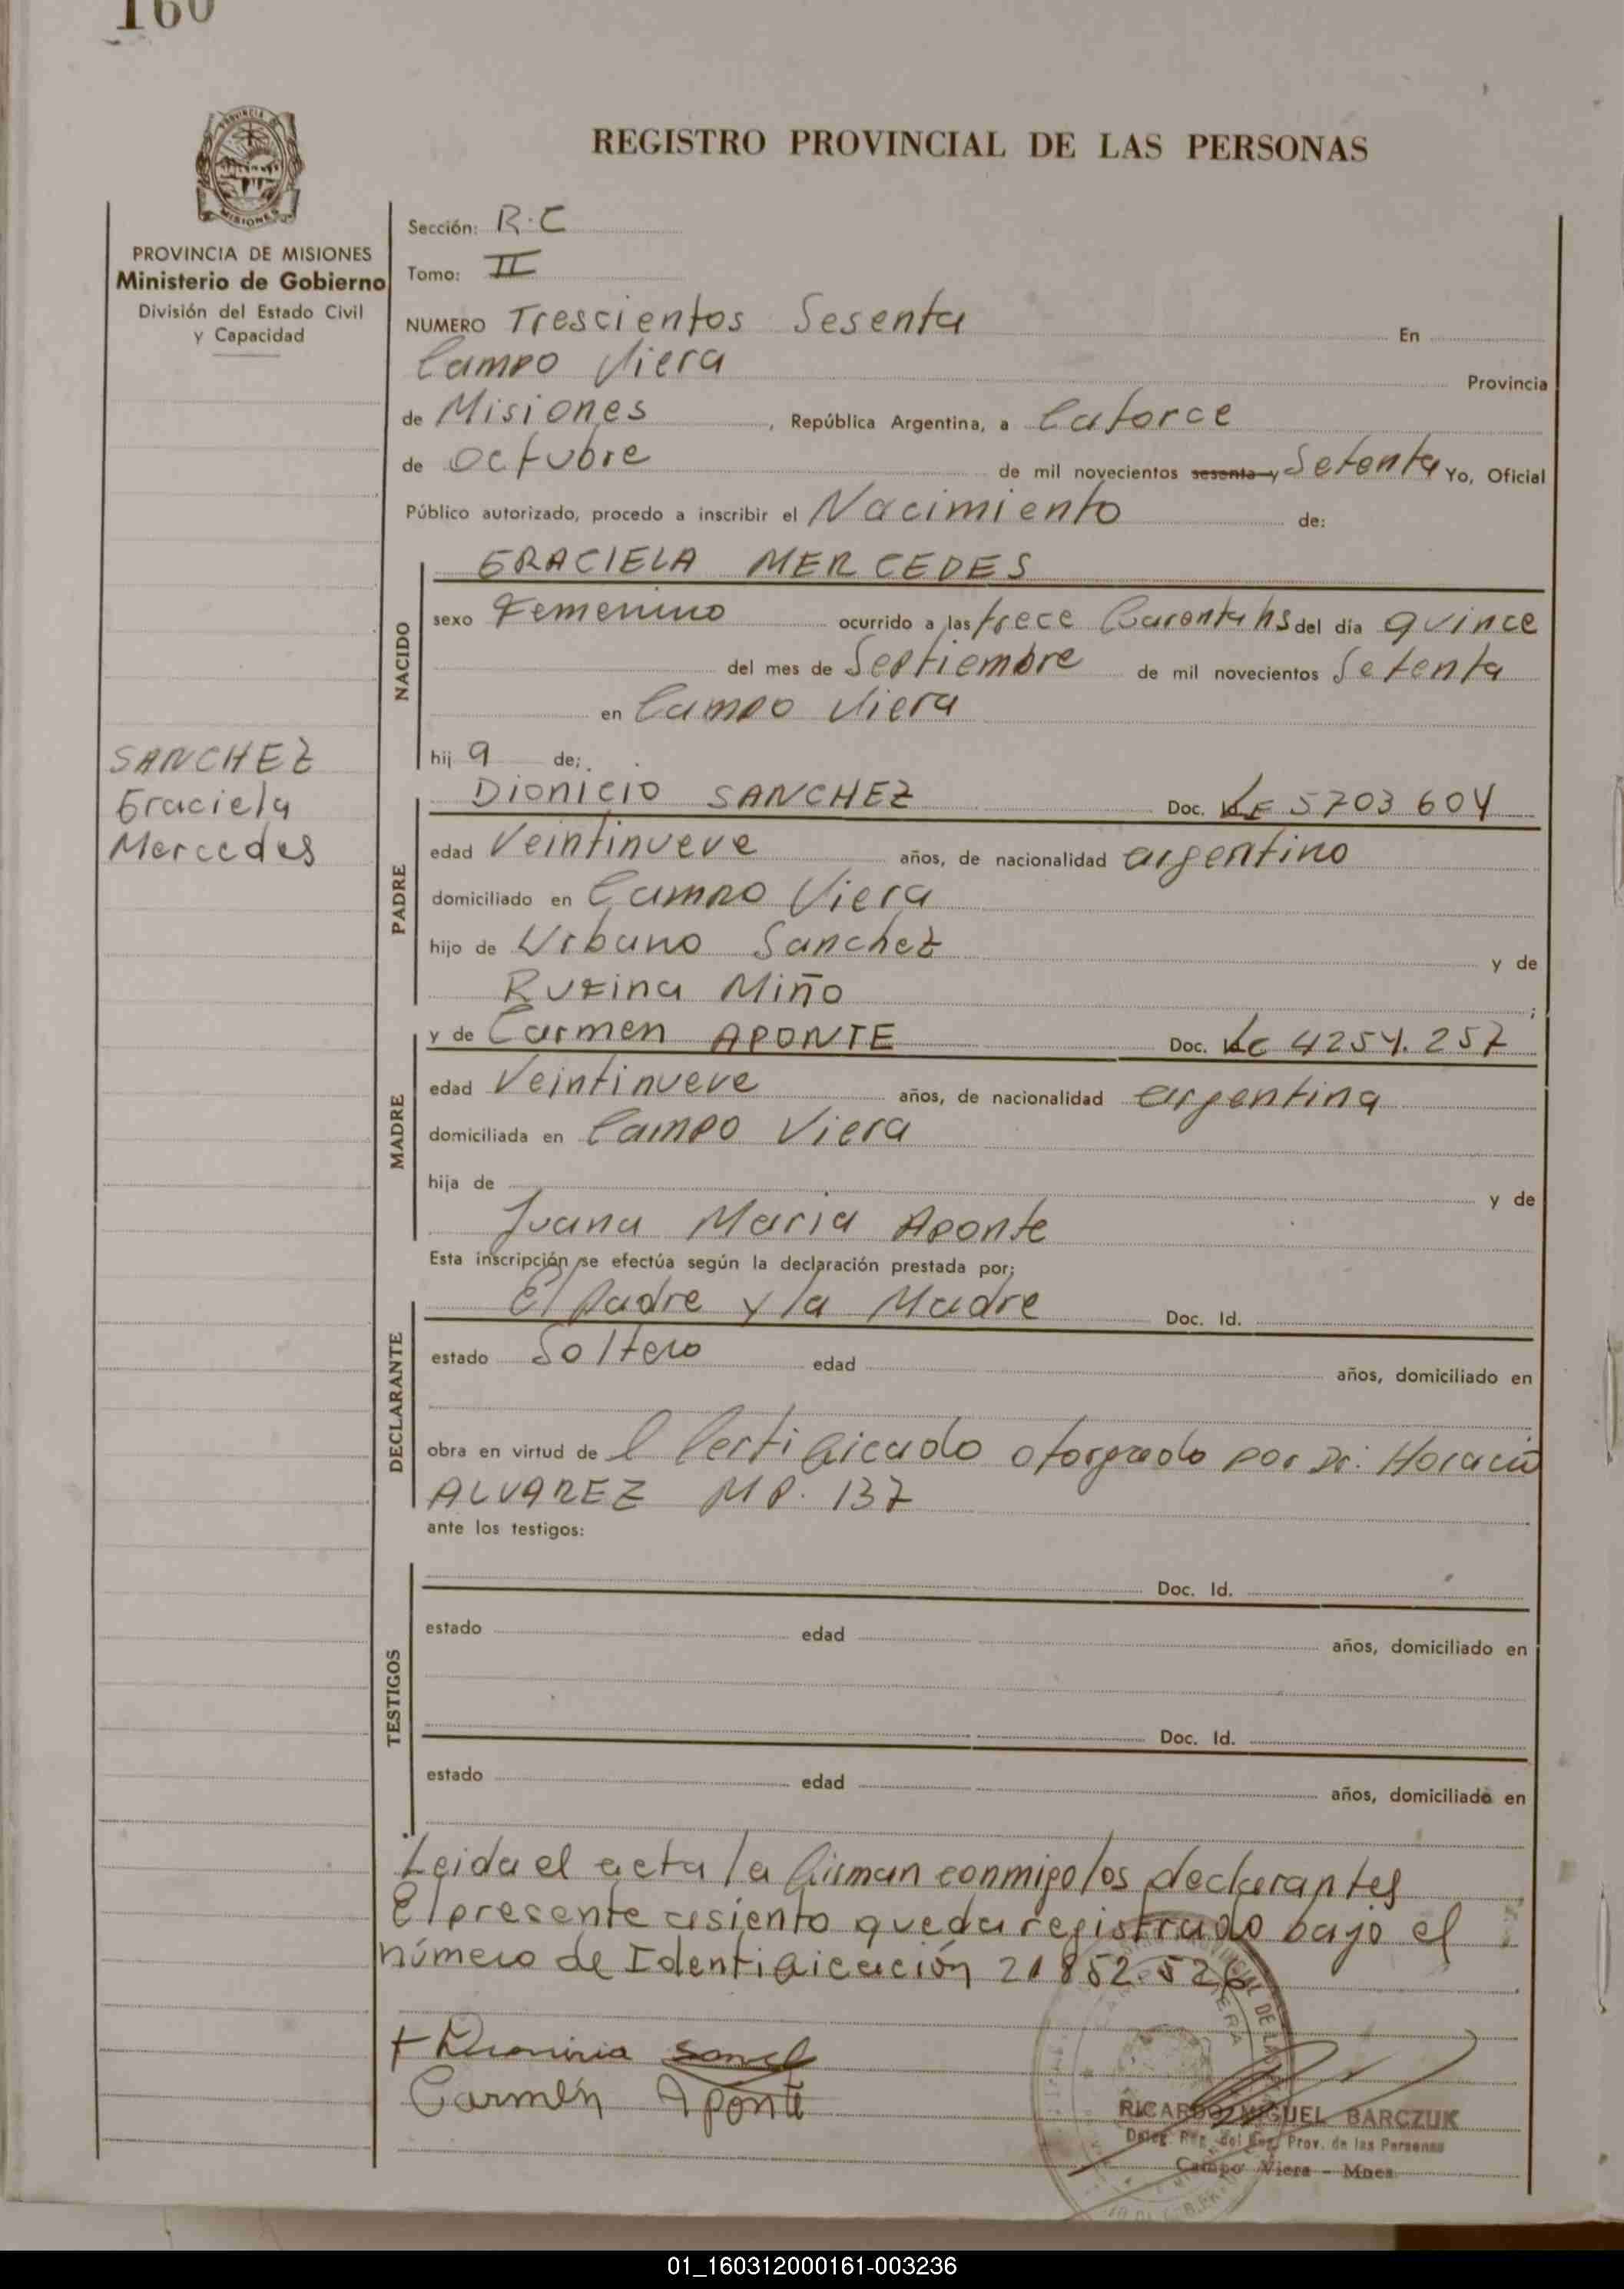 160
REGISTRO PROVINCIAL DE LAS PERSONAS
PROVINCIA DE MISIONES
Ministerio de Gobierno
División del Estado Civil
y Capacidad
Sección: R.C
Tomo: II
NUMERO Trescientos Sesenta En
Campo Viera Provincia
de Misiones, República Argentina, a Catorce
de Octubre de mil novecientos sesenta y Setenta Yo, Oficial
Público autorizado, procedo a inscribir el Nacimiento de:
NACIDO
GRACIELA MERCEDES
sexo Femenino ocurrido a las trece Cuarenta hs del día quince
del mes de Septiembre de mil novecientos Setenta
en Campo Viera
hija de:
SANCHEZ
Graciela
Mercedes
PADRE
Dionicio SANCHEZ Doc. LE 5703604
edad Veintinueve años, de nacionalidad argentino
domiciliado en Campo Viera
hijo de Urbano Sanchez y de
Rufina Miño;
MADRE
y de Carmen APONTE Doc. LC 4254.257
edad Veintinueve años, de nacionalidad argentina
domiciliada en Campo Viera
hija de y de
Juana Maria Aponte
Esta inscripción se efectúa según la declaración prestada por:
DECLARANTE
El Padre y la Madre Doc. Id.
estado Soltero edad años, domiciliado en
obra en virtud de l Certificado otorgado por Dr. Horacio
ALVAREZ MP. 137
ante los testigos:
TESTIGOS
Doc. Id.
estado edad años, domiciliado en
Doc. Id.
estado edad años, domiciliado en
Leida el acta la firman conmigo los declarantes
El presente asiento queda registrado bajo el
número de Identificación 21852.526
Carmen Aponte
RICARDO MIGUEL BARCZUK
Deleg. Reg. del Reg. Prov. de las Personas
Campo Viera - Mnes
01_160312000161-003236